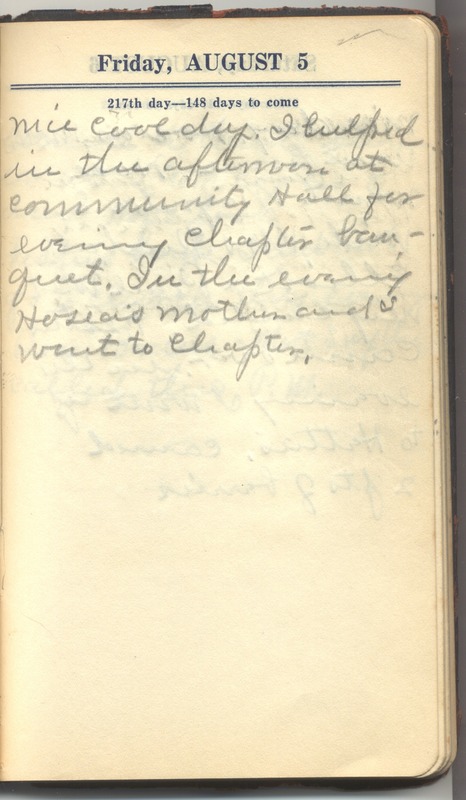 Friday, AUGUST 5
217th day—148 days to come
Nice cool day. I helped
in the afternoon at
community Hall for
evening Chapter ban-
quet. In the evening
Hosea's mother and I
went to Chapter.